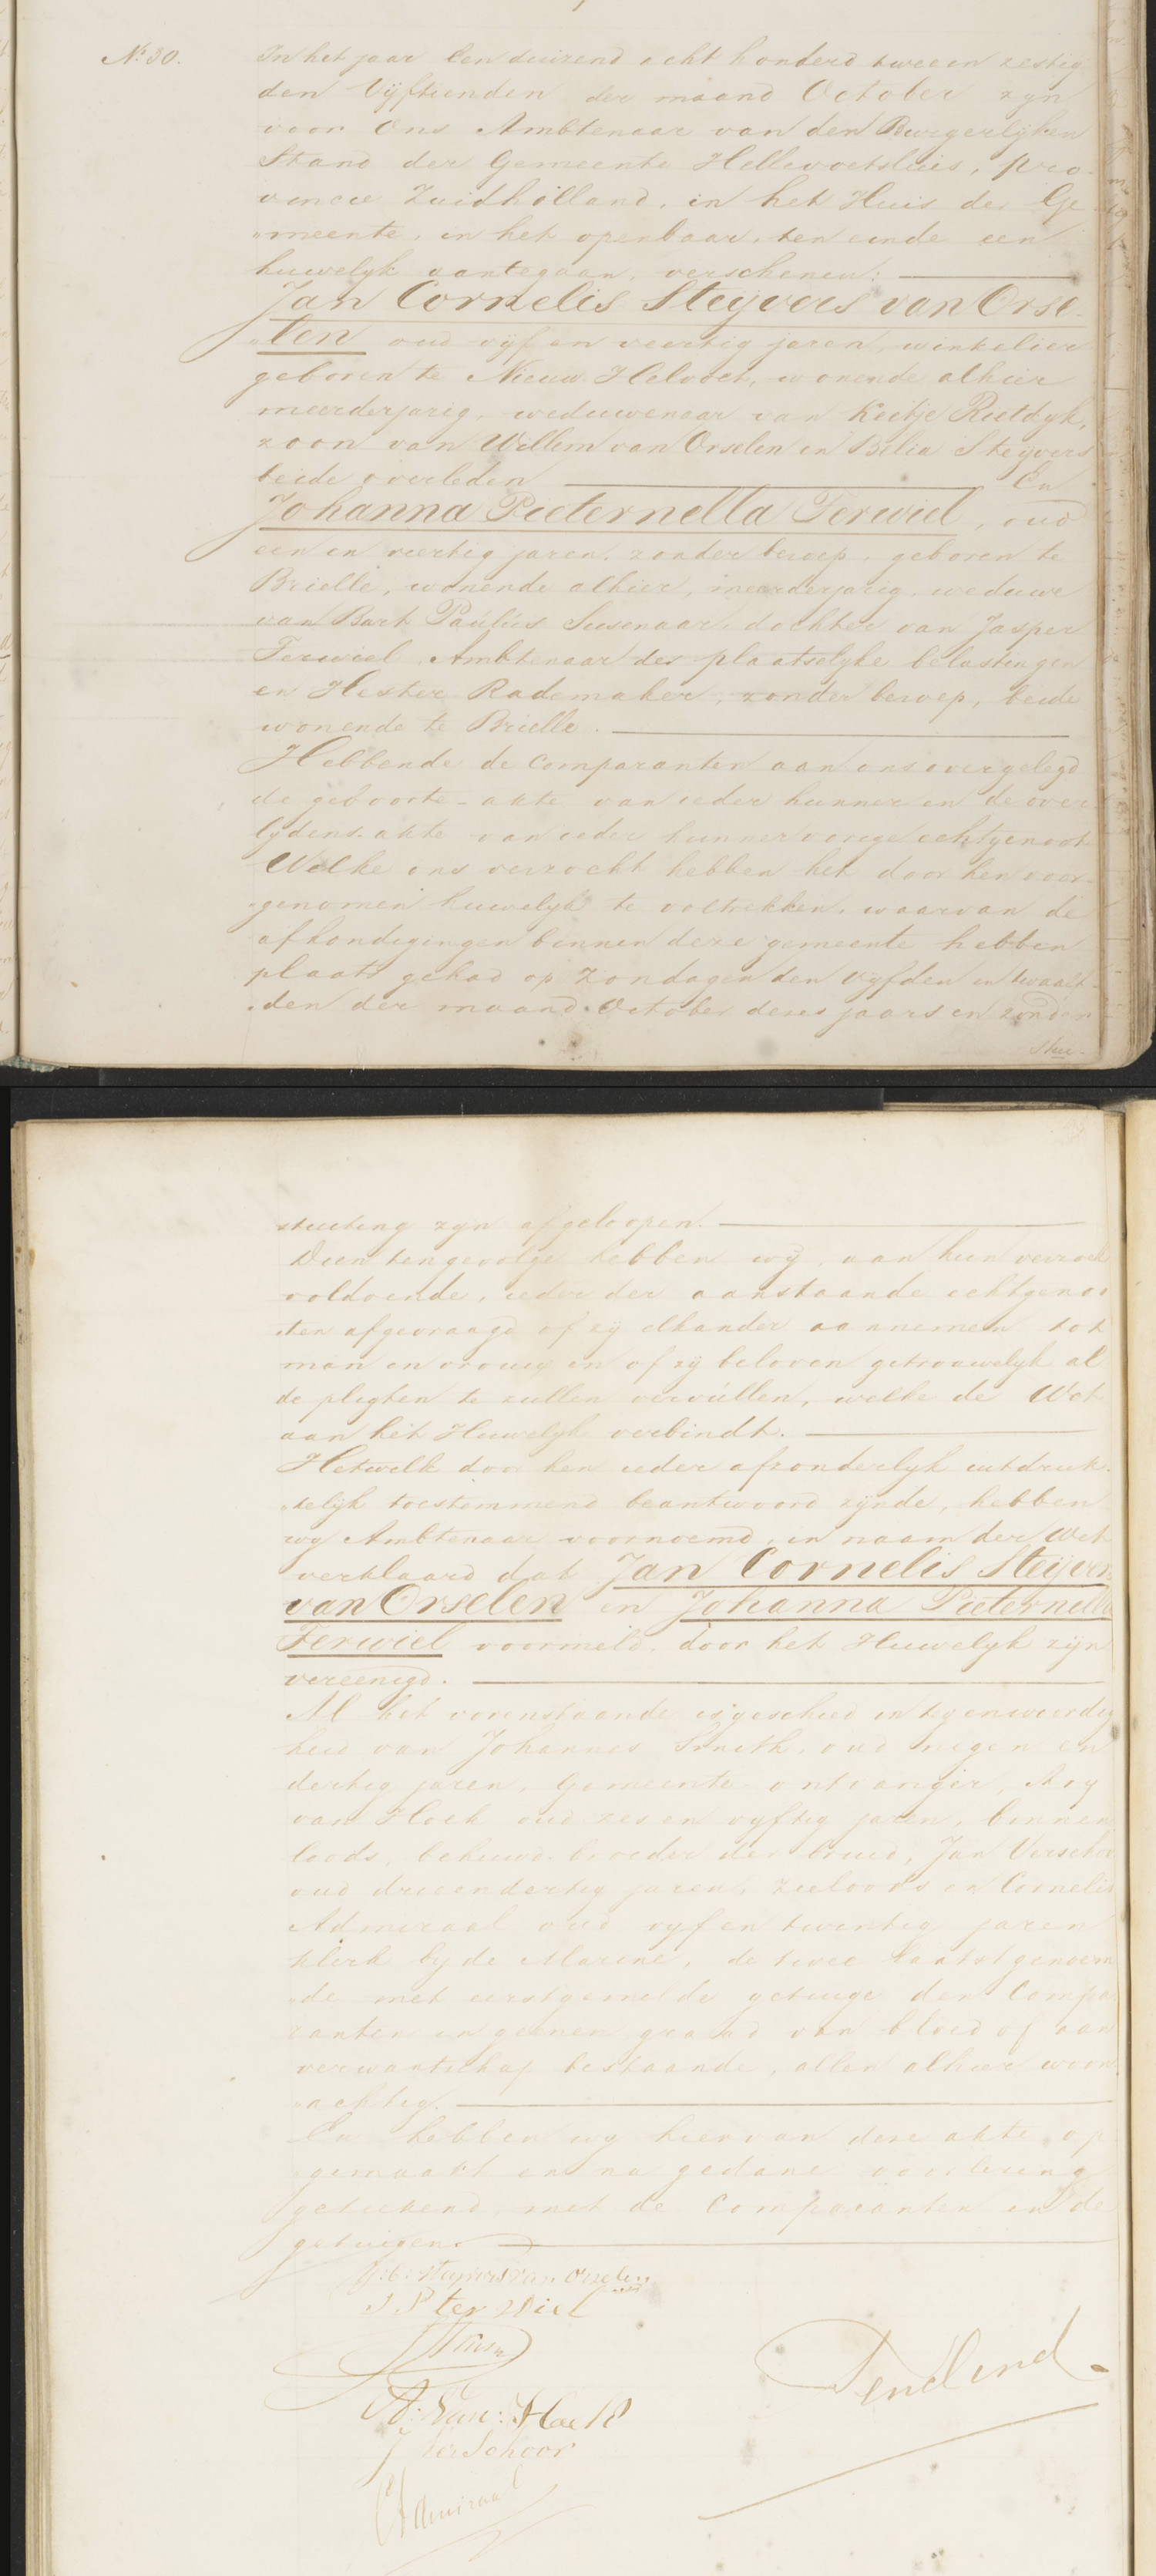 N:º 30. In het jaar Een duizend acht honderd twee en zestig
den Vijftienden der maand October zyn
voor Ons Ambtenaar van den Burgerlyken
Stand der Gemeente Hellevoetsluis, pro-
vincie Zuidholland, in het Huis der Ge-
"meente, in het openbaar, ten einde een
huwelyk aantegaan, verschenen:
Jan Cornelis Steijvers van Orse-
"len oud vyf en veertig jaren, winkelier
geboren te Nieuw-Helvoet, wonende alhier
meerderjarig, weduwenaar van Keetje Rietdyk,
zoon van Willem van Orselen en Belia Steijvers
beide overleden En
Johanna Pieternella Terwiel, oud
een en veertig jaren, zonder beroep, geboren te
Brielle, wonende alhier, meerderjarig, weduwe
van Bart Paulus Susenaar, dochter van Jasper
Terwiel Ambtenaar der plaatselyke belastingen
en Hester Rademaker, zonder beroep, beide
wonende te Brielle.
Hebbende de Comparanten aan ons overgelegd
de geboorte-akte van ieder hunner en de over
lydens-akte van ieder hunner vorige echtgenoot
Welke ons verzocht hebben het door hen voor-
"genomen huwelyk te voltrekken, waarvan de
afkondigingen binnen deze gemeente hebben
plaats gehad op Zondagen den vyfden en twaalf-
"den der maand October dezes jaars en zonder
stui-
stuiting zyn afgeloopen.
Dien tengevolge hebben wij, aan hun verzoek
voldoende, ieder der aanstaande echtgenoo
"ten afgevraagd of zij elkander aannemen tot
man en vrouw en of zij beloven getrouwelyk al
de pligten te zullen vervullen, welke de Wet
aan het Huwelyk verbindt.
Hetwelk door hen ieder afzonderlyk uitdruk-
"kelijk toestemmend beantwoord zijnde, hebben
wy Ambtenaar voornoemd, in naam der Wet
verklaard dat Jan Cornelis Steijvers
van Orselen en Johanna Pieternella
Terwiel voormeld, door het Huwelyk zijn
vereenigd.
Al het vorenstaande is geschied in tegenwoordig
heid van Johannes Smith, oud negen en
dertig jaren, Gemeente-ontvanger, Ary
van Hoek oud zes en vyftig jaren, binnen
loods, behuwd broeder der bruid, Jan Verschoor
oud drieendertig jaren, zeeloods en Cornelis
Admiraal oud vyf en twintig jaren
klerk by de Marine, de twee laatstgenoem
"de met eerstgemelde getuige den Compa
ranten in geenen graad van bloed of aan
verwantschap bestaande, allen alhier woon
"achtig.
En hebben wy hiervan deze akte op
gemaakt en na gedane voorlezing
geteekend met de Comparanten en de
getuigen.
J:C: Steijvers van Orselen
J P ter Wiel
A: Van: Hoek
J VerSchoor
C Admiraal